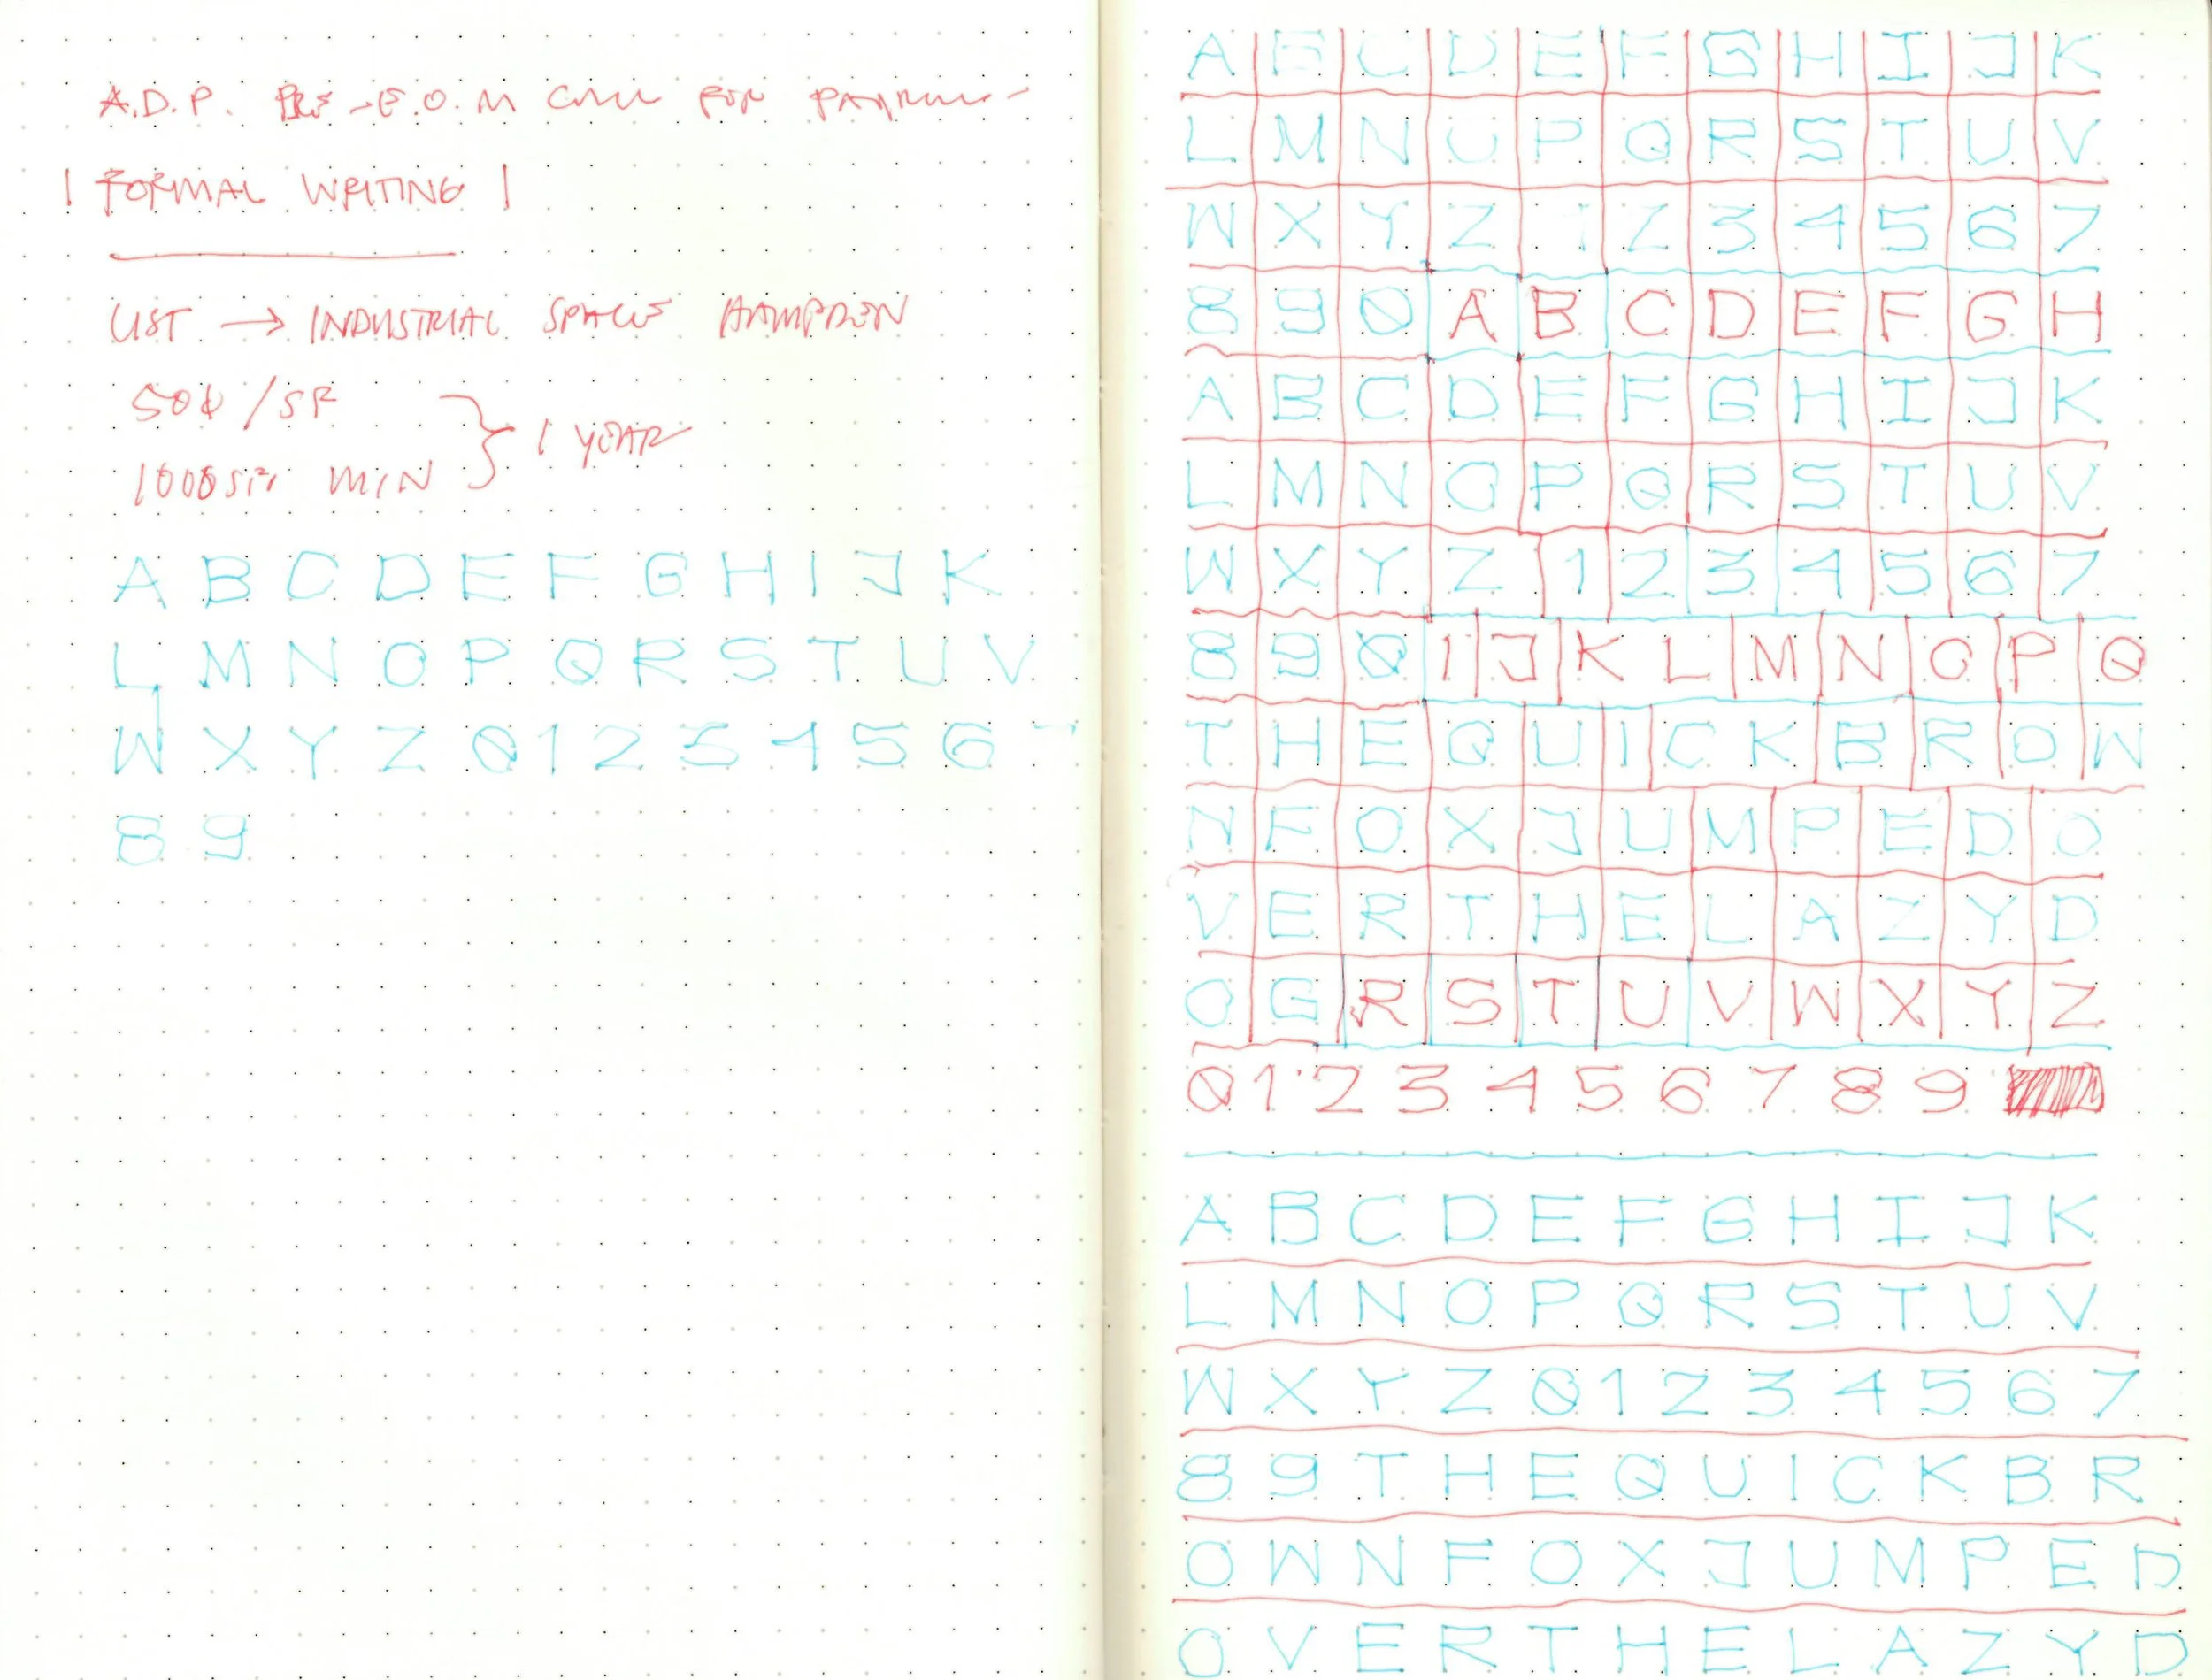 A.D.P. PRE-E.O.M CALL FOR PAYROLL-
! FORMAL WRITING !
LIST → INDUSTRIAL SPACE HAMPDEN
50¢/SF
1000SF MIN } 1 YEAR
A B C D E F G H I J K
L M N O P Q R S T U V
W X Y Z 0 1 2 3 4 5 6 7
8 9
A B C D E F G H I J K
L M N O P Q R S T U V
W X Y Z 1 2 3 4 5 6 7
8 9 0 A B C D E F G H
A B C D E F G H I J K
L M N O P Q R S T U V
W X Y Z 1 2 3 4 5 6 7
8 9 0 I J K L M N O P Q
T H E Q U I C K B R O W
N F O X J U M P E D O
V E R T H E L A Z Y D
O G R S T U V W X Y Z
0 1 2 3 4 5 6 7 8 9
A B C D E F G H I J K
L M N O P Q R S T U V
W X Y Z 0 1 2 3 4 5 6 7
8 9 T H E Q U I C K B R
O W N F O X J U M P E D
O V E R T H E L A Z Y D